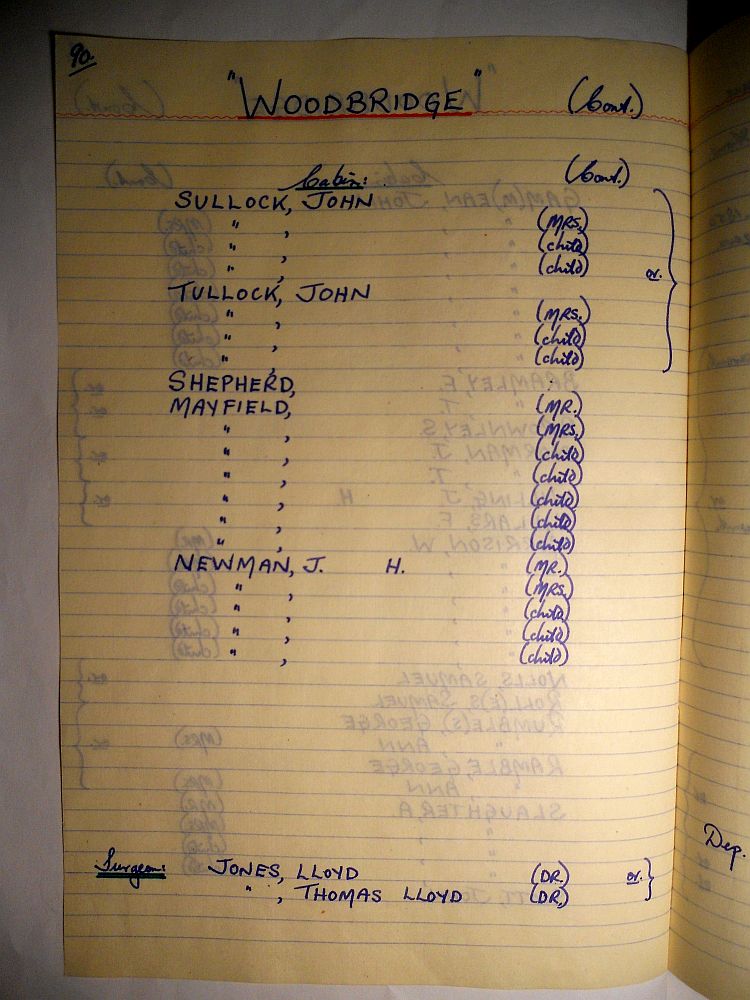 90.
"WOODBRIDGE" (Cont.)
Cabin: (Cont.)
SULLOCK, JOHN
" , (MRS.)
" , (child)
" , (child)
or.
TULLOCK, JOHN
" , (MRS.)
" , (child)
" , (child)
SHEPHERD,
MAYFIELD, (MR.)
" , (MRS.)
" , (child)
" , (child)
" , (child)
" , (child)
" , (child)
NEWMAN, J. H. (MR.)
" , (MRS.)
" , (child)
" , (child)
" , (child)
Surgeon: JONES, LLOYD (DR.) or.
" , THOMAS LLOYD (DR.)
Dep.